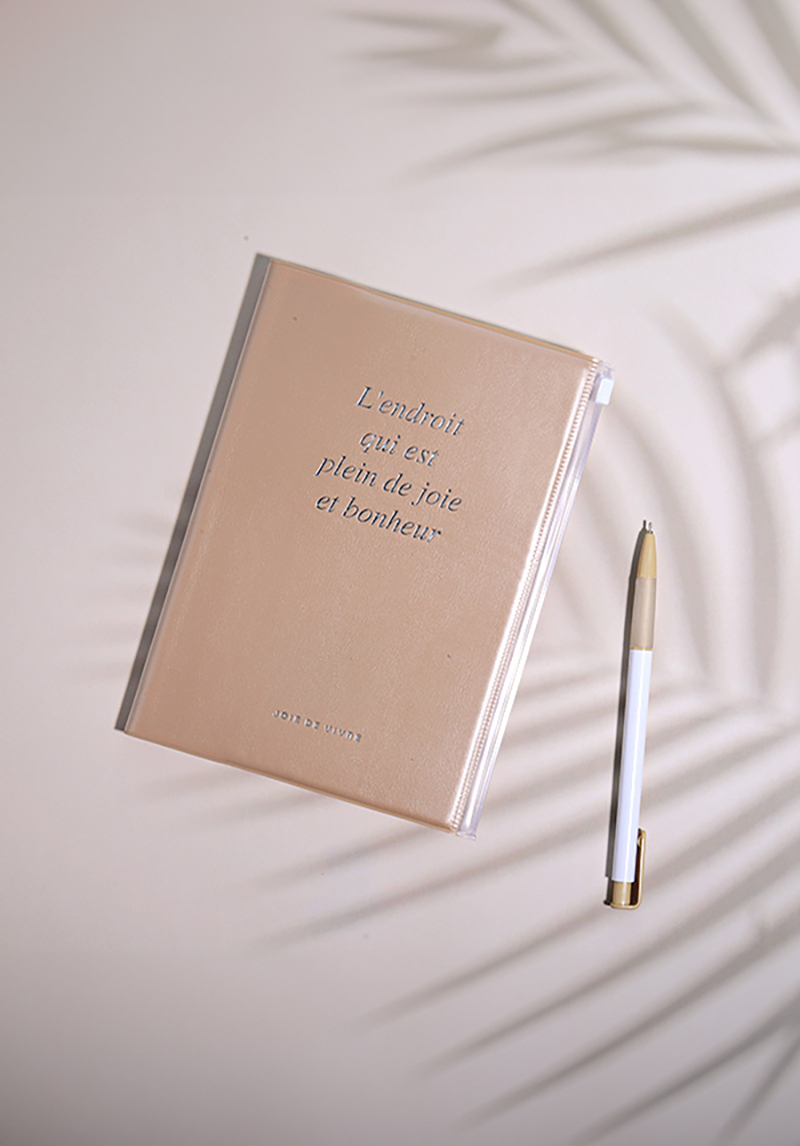 L'endroit
qui est
plein de joie
et bonheur
JOIE DE VIVRE